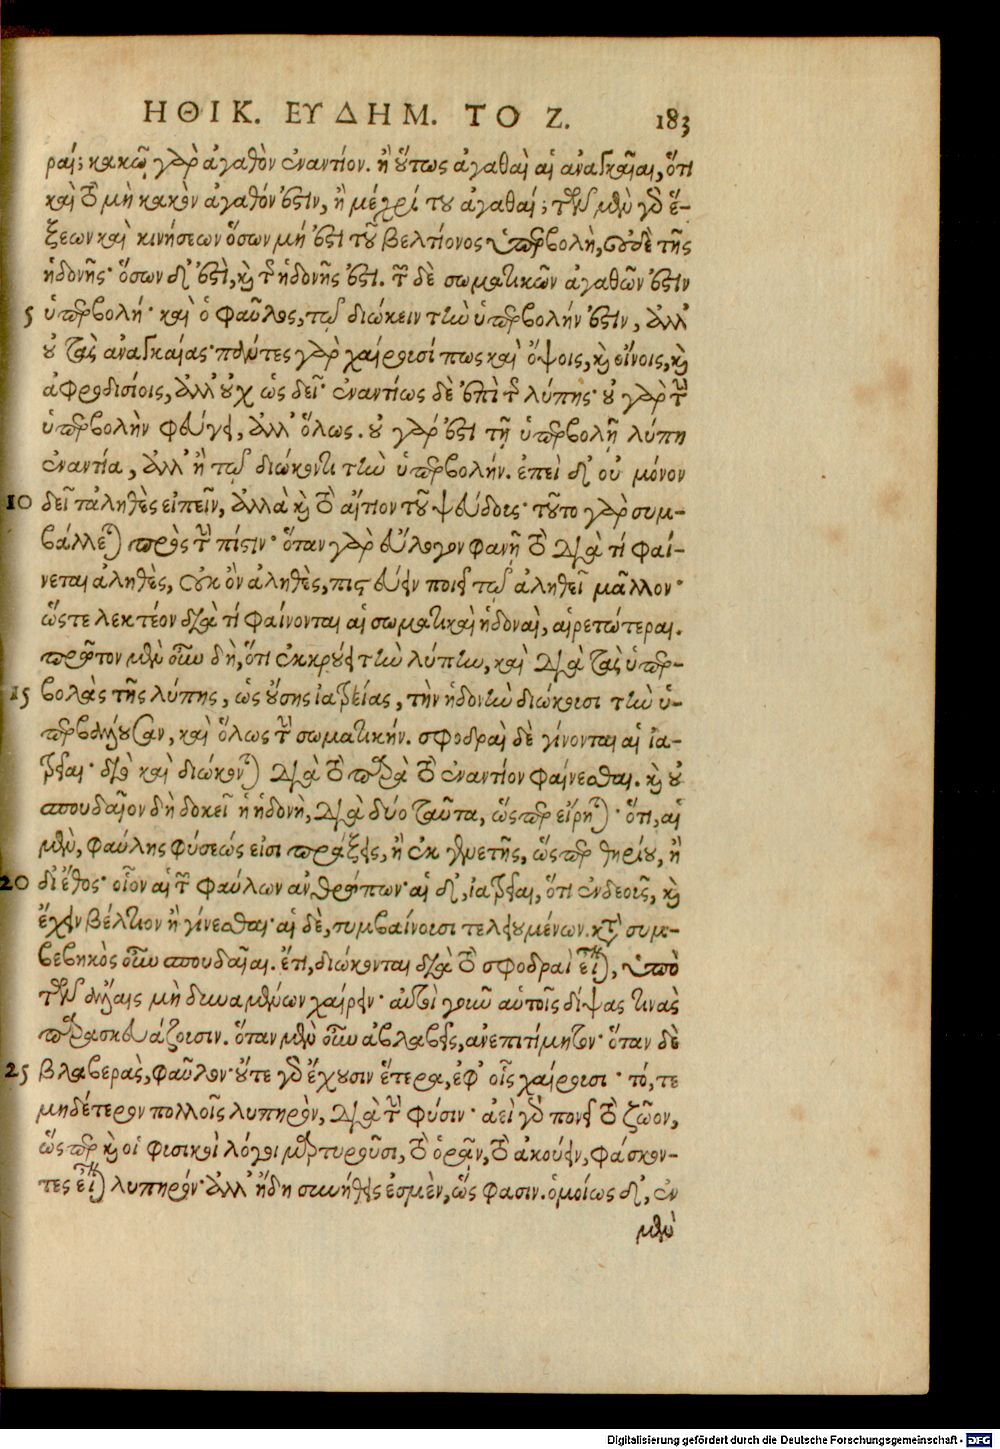 ΗΘΙΚ. ΕΥΔΗΜ. ΤΟ Ζ. 183
ραί; κακῷ γὰρ ἀγαθὸν ἐναντίον. ἢ οὕτως ἀγαθαὶ αἱ ἀναγκαῖαι, ὅτι
καὶ τὸ μὴ κακὸν ἀγαθόν ἐστιν, ἢ μέχρί του ἀγαθαί; τῶν μὲν γὰρ ἕ-
ξεων καὶ κινήσεων ὅσων μή ἐστι τοῦ βελτίονος ὑπερβολὴ, οὐδὲ τῆς
ἡδονῆς· ὅσων δ' ἐστὶ, καὶ τῆς ἡδονῆς ἐστι. τῶν δὲ σωματικῶν ἀγαθῶν ἐστιν
5 ὑπερβολή· καὶ ὁ φαῦλος, τῷ διώκειν τὴν ὑπερβολήν ἐστιν, ἀλλ'
οὐ τὰς ἀναγκαίας· πάντες γὰρ χαίρουσί πως καὶ ὄψοις, καὶ οἴνοις, καὶ
ἀφροδισίοις, ἀλλ' οὐχ ὡς δεῖ· ἐναντίως δὲ ἐπὶ τῆς λύπης· οὐ γὰρ τὴν
ὑπερβολὴν φεύγει, ἀλλ' ὅλως. οὐ γάρ ἐστι τῇ ὑπερβολῇ λύπη
ἐναντία, ἀλλ' ἢ τῷ διώκοντι τὴν ὑπερβολήν. ἐπεὶ δ' οὐ μόνον
10 δεῖ τἀληθὲς εἰπεῖν, ἀλλὰ καὶ τὸ αἴτιον τοῦ ψεύδους· τοῦτο γὰρ συμ-
βάλλεται πρὸς τὴν πίστιν· ὅταν γὰρ εὔλογον φανῇ τὸ διὰ τί φαί-
νεται ἀληθὲς, οὐκ ὂν ἀληθὲς, πιστεύειν ποιεῖ τῷ ἀληθεῖ μᾶλλον·
ὥστε λεκτέον διὰ τί φαίνονται αἱ σωματικαὶ ἡδοναὶ, αἱρετώτεραι.
πρῶτον μὲν οὖν δὴ, ὅτι ἐκκρούει τὴν λύπην, καὶ διὰ τὰς ὑπερ-
15 βολὰς τῆς λύπης, ὡς οὔσης ἰατρείας, τὴν ἡδονὴν διώκουσι τὴν ὑ-
περβάλλουσαν, καὶ ὅλως τὴν σωματικήν. σφοδραὶ δὲ γίνονται αἱ ἰα-
τρεῖαι· διὸ καὶ διώκονται διὰ τὸ παρὰ τὸ ἐναντίον φαίνεσθαι. καὶ οὐ
σπουδαῖον δὴ δοκεῖ ἡ ἡδονὴ, διὰ δύο ταῦτα, ὥσπερ εἴρηται· ὅτι, αἱ
μὲν, φαύλης φύσεώς εἰσι πράξεις, ἢ ἐκ γενετῆς, ὥσπερ θηρίου, ἢ
20 δι' ἔθος· οἷον αἱ τῶν φαύλων ἀνθρώπων· αἱ δ', ἰατρεῖαι, ὅτι ἐνδεοῦς, καὶ
ἔχειν βέλτιον ἢ γίνεσθαι· αἱ δὲ, συμβαίνουσι τελειουμένων. κατὰ συμ-
βεβηκὸς οὖν σπουδαῖαι. ἔτι, διώκονται διὰ τὸ σφοδραὶ εἶναι, ὑπὸ
τῶν ἄλλαις μὴ δυναμένων χαίρειν· αὐτοὶ γοῦν αὑτοῖς δίψας τινὰς
παρασκευάζουσιν. ὅταν μὲν οὖν ἀβλαβεῖς, ἀνεπιτίμητον· ὅταν δὲ
25 βλαβερὰς, φαῦλον· οὔτε γὰρ ἔχουσιν ἕτερα, ἐφ' οἷς χαίρουσι· τό, τε
μηδέτερον πολλοῖς λυπηρὸν, διὰ τὴν φύσιν· ἀεὶ γὰρ πονεῖ τὸ ζῶον,
ὥσπερ καὶ οἱ φυσικοὶ λόγοι μαρτυροῦσι, τὸ ὁρᾷν, τὸ ἀκούειν, φάσκον-
τες εἶναι λυπηρόν· ἀλλ' ἤδη συνήθεις ἐσμὲν, ὥς φασιν. ὁμοίως δ', ἐν
μὲν
Digitalisierung gefördert durch die Deutsche Forschungsgemeinschaft - DFG